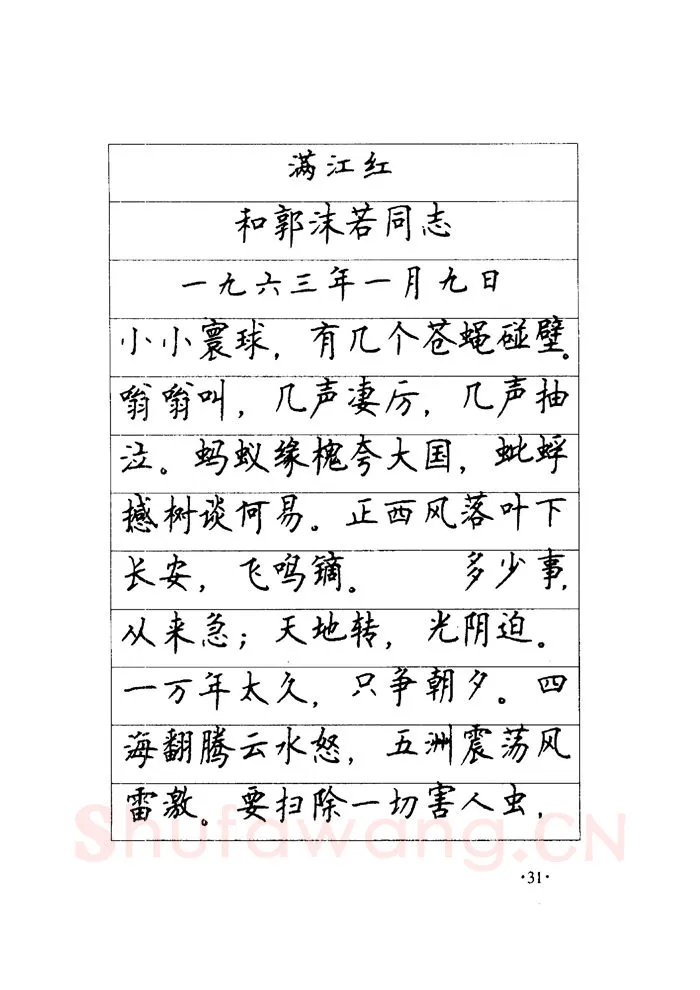 满江红
和郭沫若同志
一九六三年一月九日
小小寰球，有几个苍蝇碰壁。
嗡嗡叫，几声凄厉，几声抽
泣。蚂蚁缘槐夸大国，蚍蜉
撼树谈何易。正西风落叶下
长安，飞鸣镝。 多少事，
从来急；天地转，光阴迫。
一万年太久，只争朝夕。四
海翻腾云水怒，五洲震荡风
雷激。要扫除一切害人虫，
Shufawang.CN
·31·